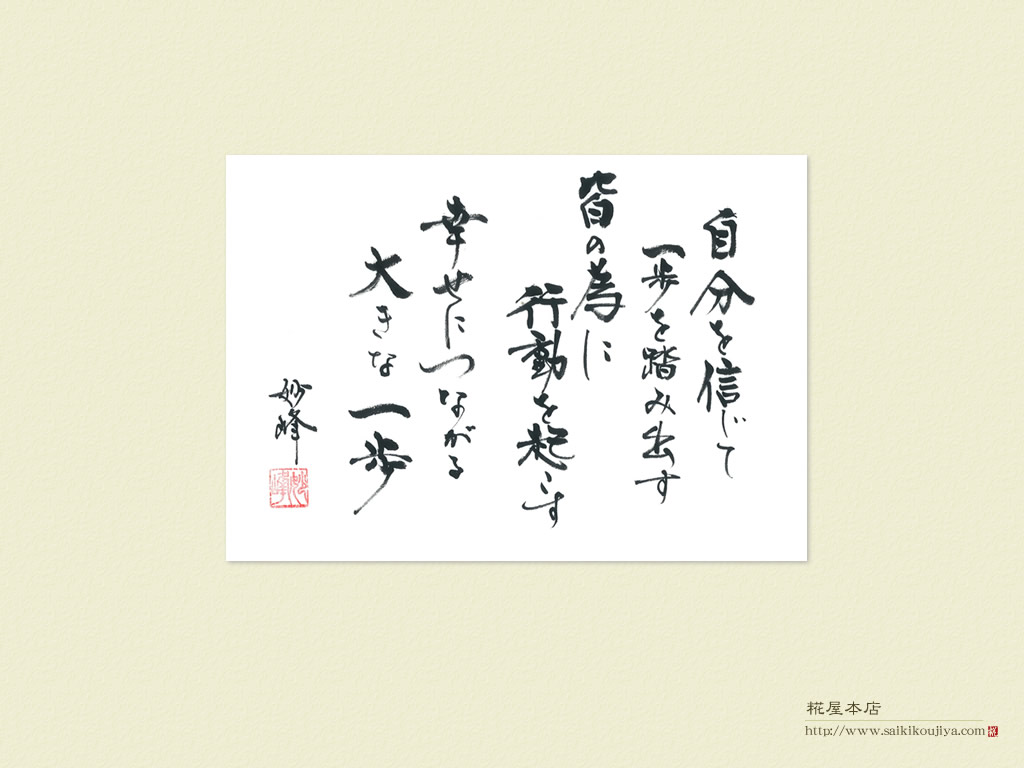 自分を信じて
一歩を踏み出す
皆の為に
行動を起こす
幸せにつながる
大きな一歩
妙峰
糀屋本店
http://www.saikikoujiya.com